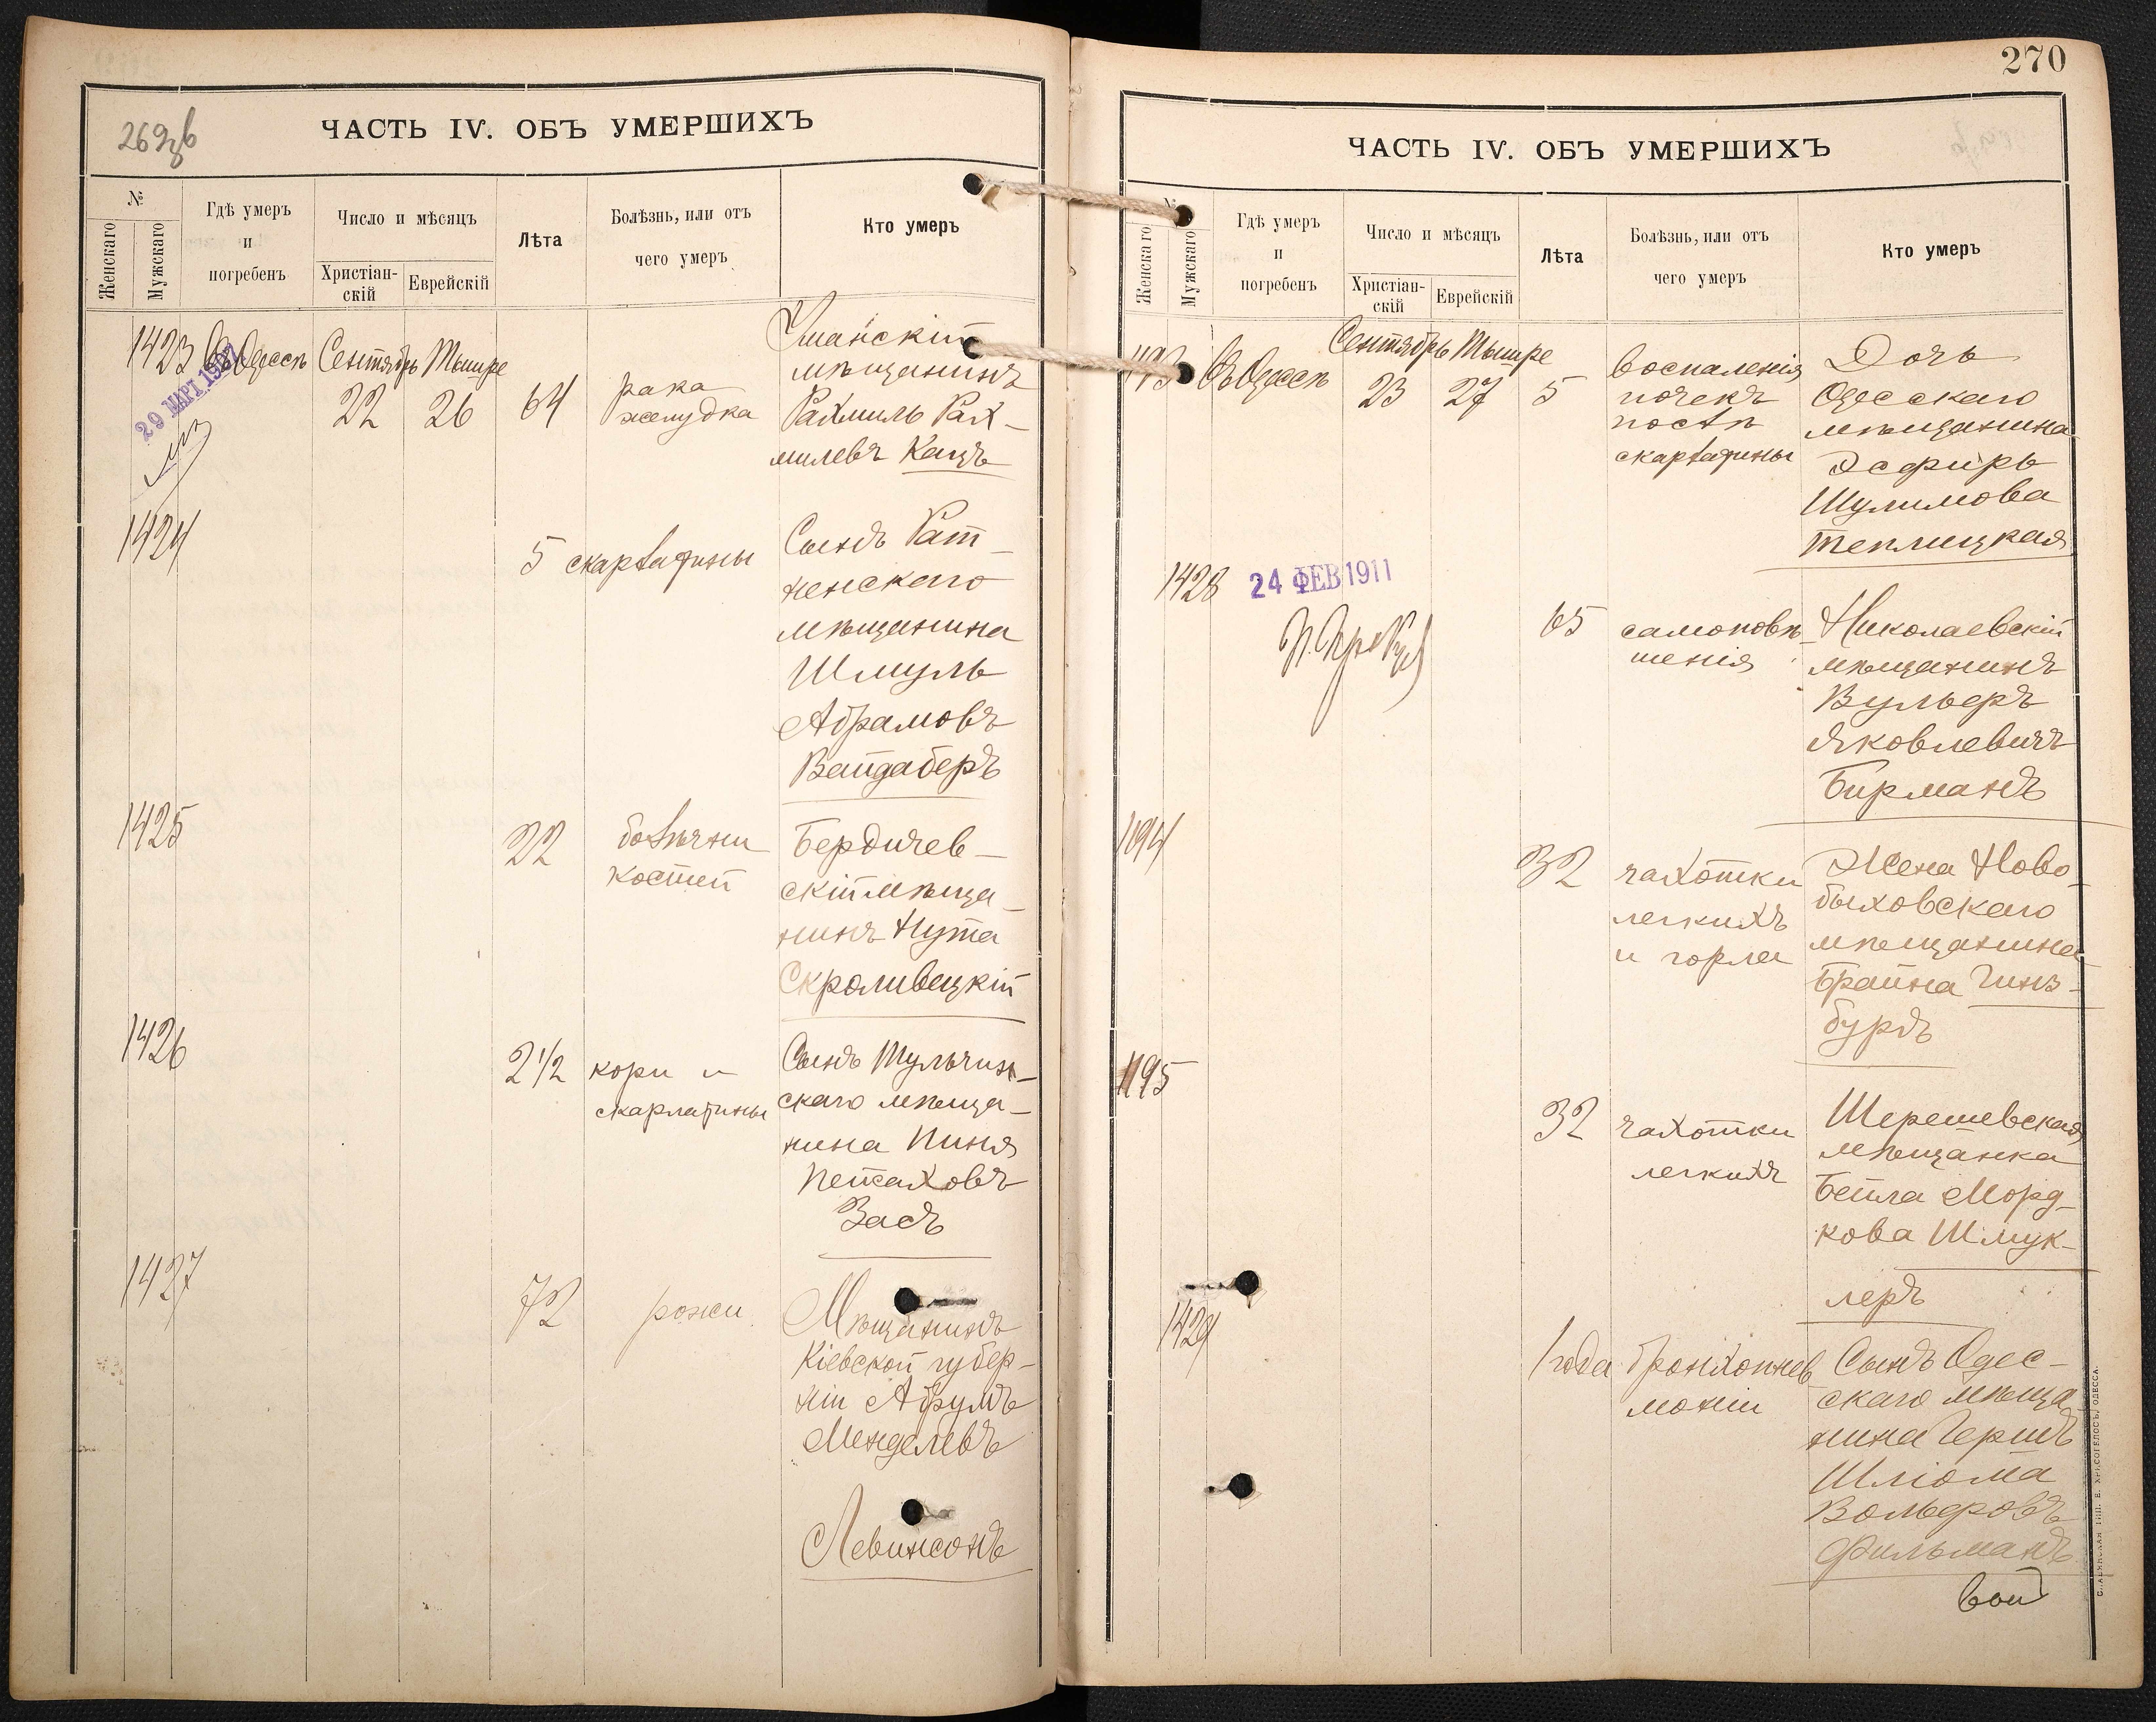 269зв
ЧАСТЬ IV. ОБЪ УМЕРШИХЪ
№
Женскаго
Мужскаго
Гдѣ умеръ
и
погребенъ
Число и мѣсяцъ
Христіан-
скій
Еврейскій
Лѣта
Болѣзнь, или отъ
чего умеръ
Кто умеръ
1423 Въ Одессѣ Сентябрь Тышре
22 26 64 рака
желудка
Уманскій
мѣщанинъ
Рахмиль Рах-
милевъ Кацъ
29 МАРТ 1907
1424
5 скарлатины
Сынъ Рат-
ненскаго
мѣщанина
Шмуль
Абрамовъ
Вайдаберъ
1425
22 болѣзни
костей
Бердичев-
скій мѣща-
нинъ Нута
Скроливецкій
1426
2 1/2 кори и
скарлатины
Сынъ Тульчин-
скаго мѣща-
нина Пиня
Пейсаховъ
Засъ
1427
72 рожи
Мѣщанинъ
Кіевской губер-
ніи Абрумъ
Менделевъ
Левинсонъ
270
ЧАСТЬ IV. ОБЪ УМЕРШИХЪ
№
Женскаго
Мужскаго
Гдѣ умеръ
и
погребенъ
Число и мѣсяцъ
Христіан-
скій
Еврейскій
Лѣта
Болѣзнь, или отъ
чего умеръ
Кто умеръ
1193 Въ Одессѣ Сентябрь Тышре
23 27 5
воспаленія
почекъ
послѣ
скарлатины
Дочь
Одесскаго
мѣщанина
Эсфирь
Шулимова
Теплицкая
1428 24 ФЕВ 1911
65 самоповѣ-
шенія
Николаевскій
мѣщанинъ
Вульфъ
Яковлевичъ
Бирманъ
1194
32 чахотки
легкихъ
и горла
Жена Ново-
быховскаго
мѣщанина
Брайна Гинз-
бургъ
1195
32 чахотки
легкихъ
Шерешевская
мѣщанка
Бейла Морд-
кова Шмук-
леръ
1429
1 года бронхопнев-
моніи
Сынъ Одес-
скаго мѣща-
нина Гершъ
Шліома
Вольфовъ
Фильманъ
вой